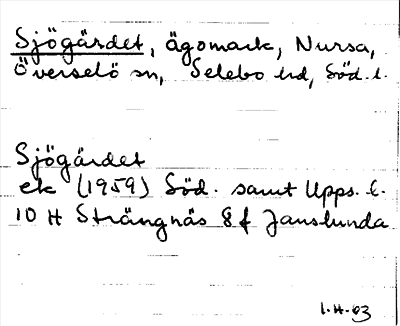 Sjögärdet, ägomark, Nursa,
Överselö sn, Selebo hd, Söd. l.
Sjögärdet
ek (1959) Söd. samt Upps. l.
10 H Strängnäs 8 f Janslunda
1.4.63